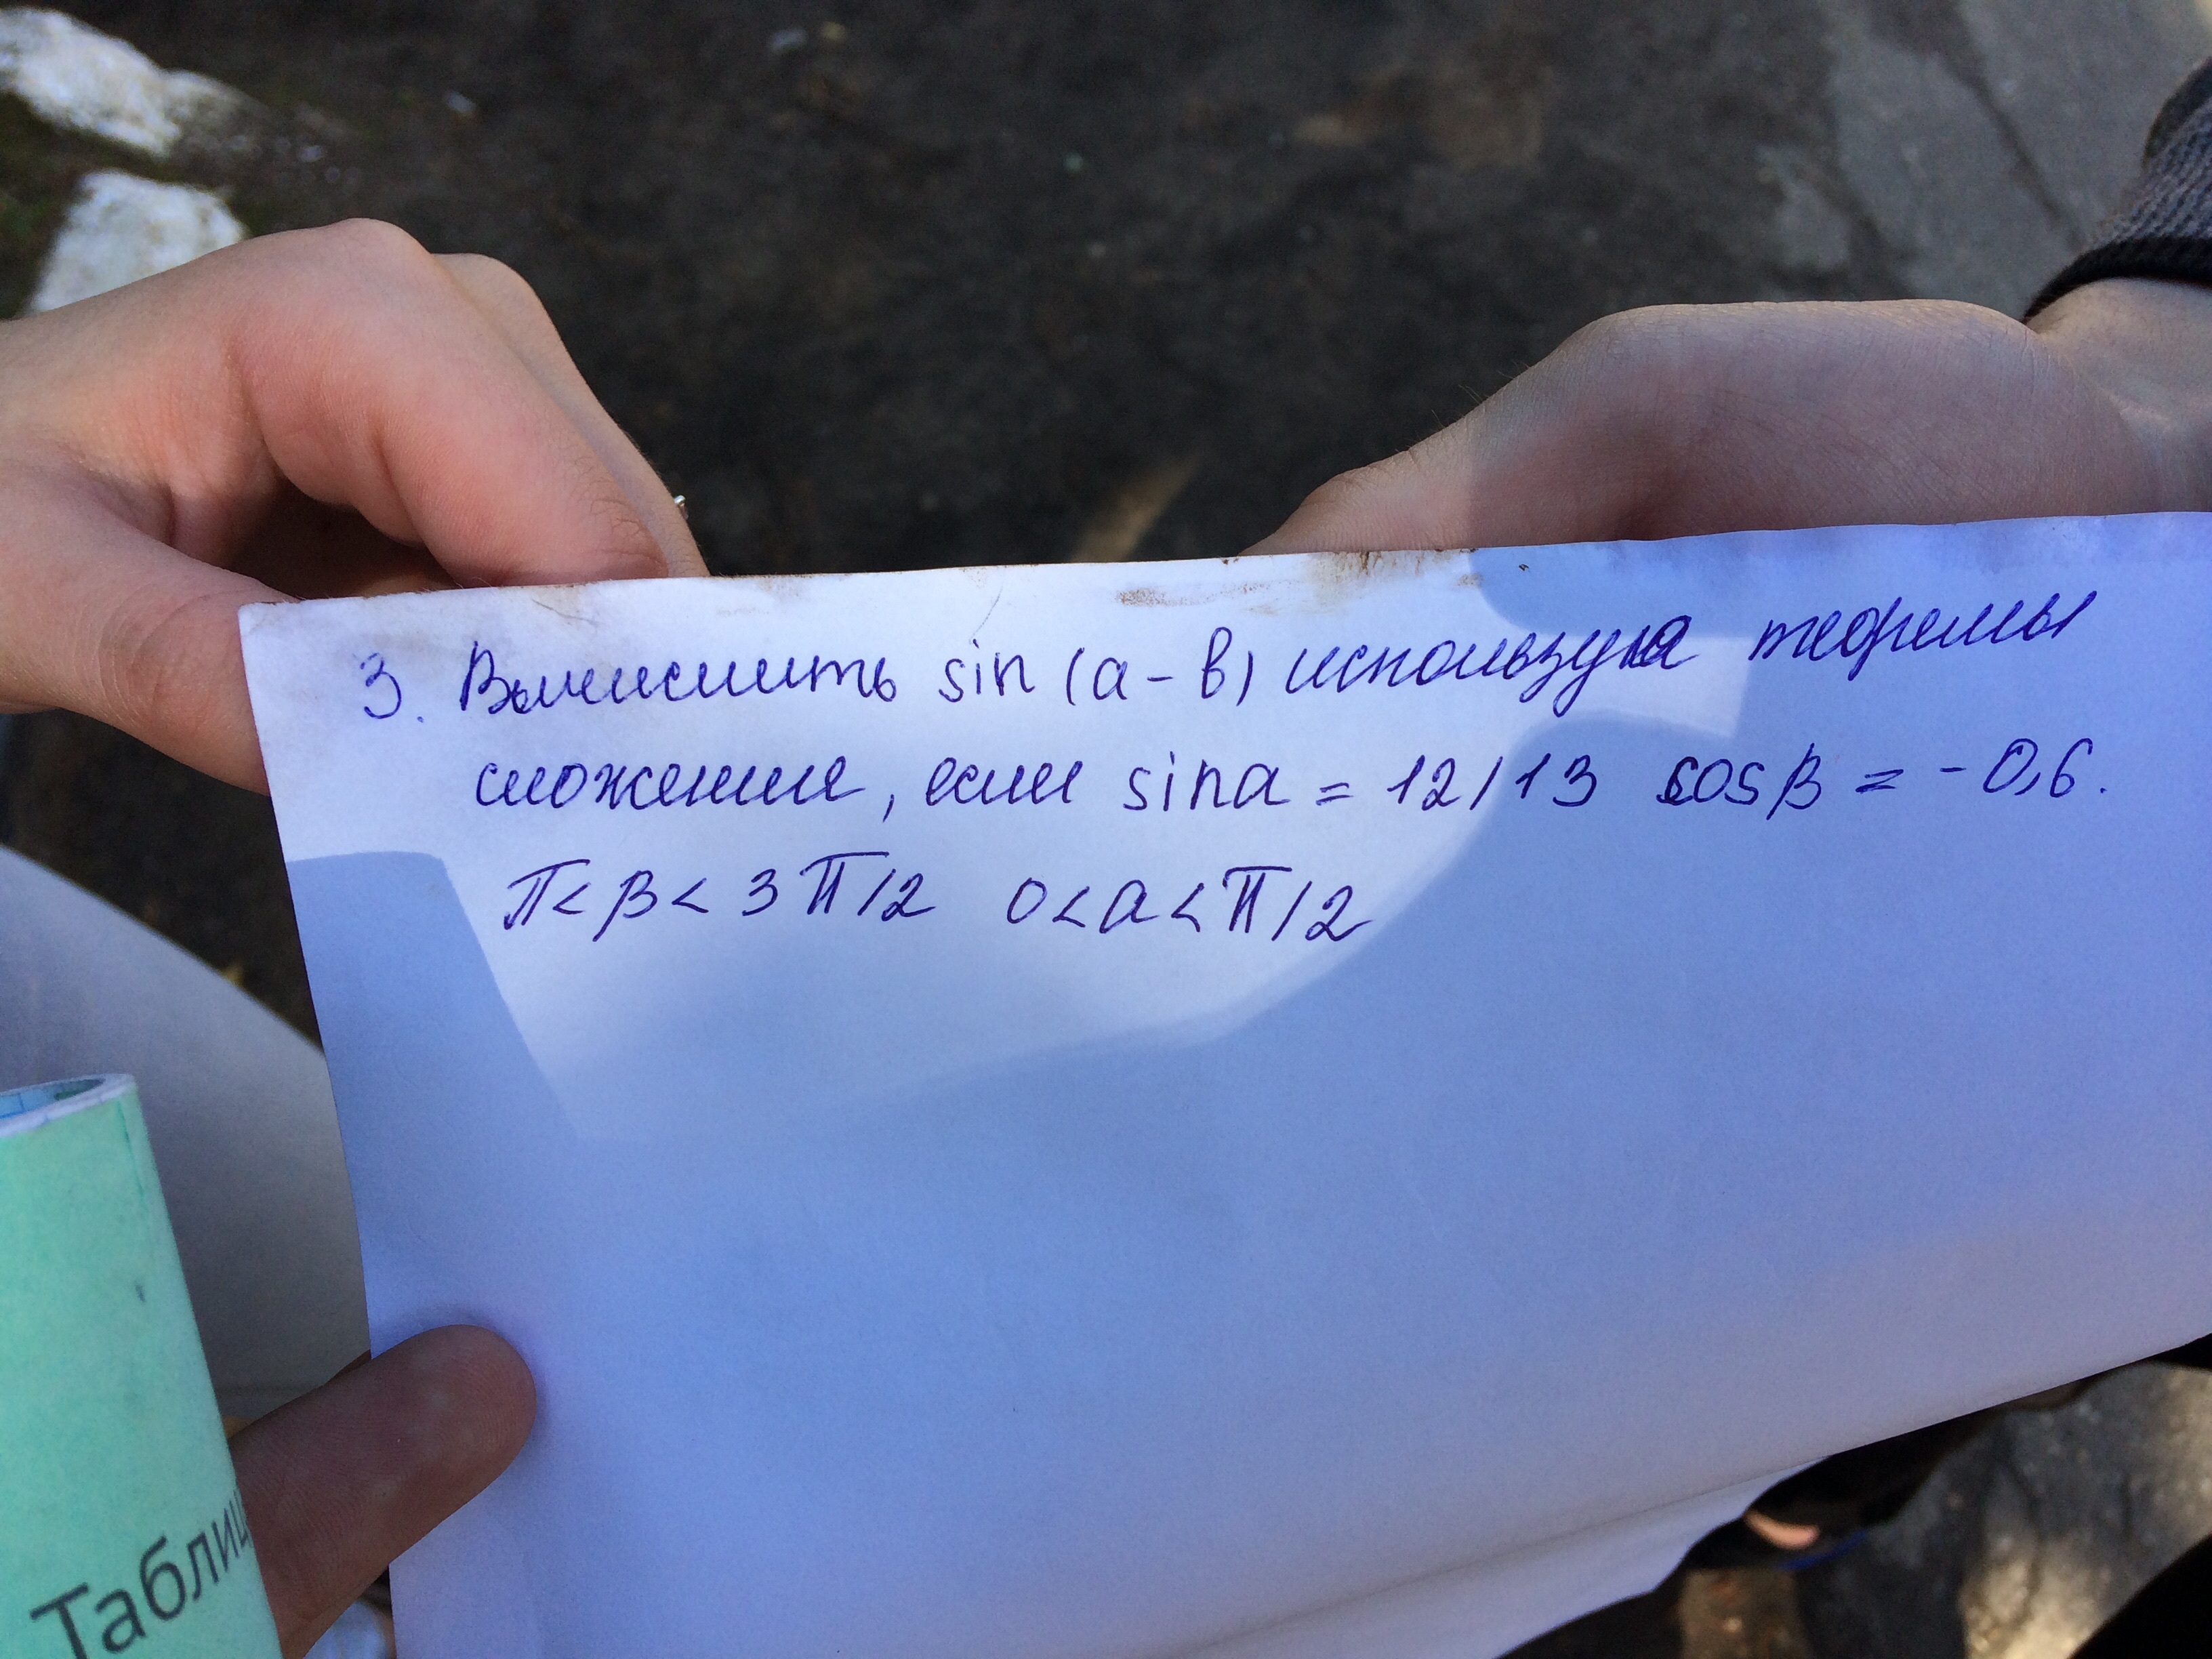 3. Вычислить sin (a - b) используя теоремы
сложение, если sin a = 12/13 cos β = -0,6.
π < β < 3π/2 0 < a < π/2
Таблиц